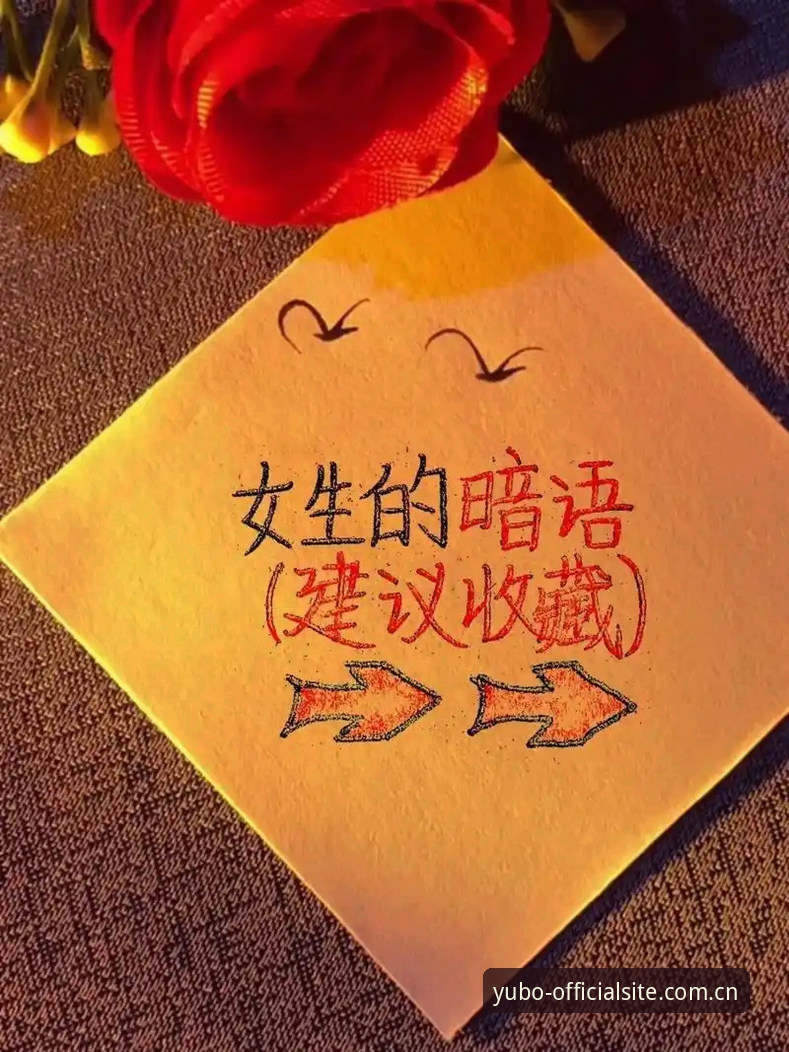 女生的暗语
(建议收藏)
yubo-officialsite.com.cn